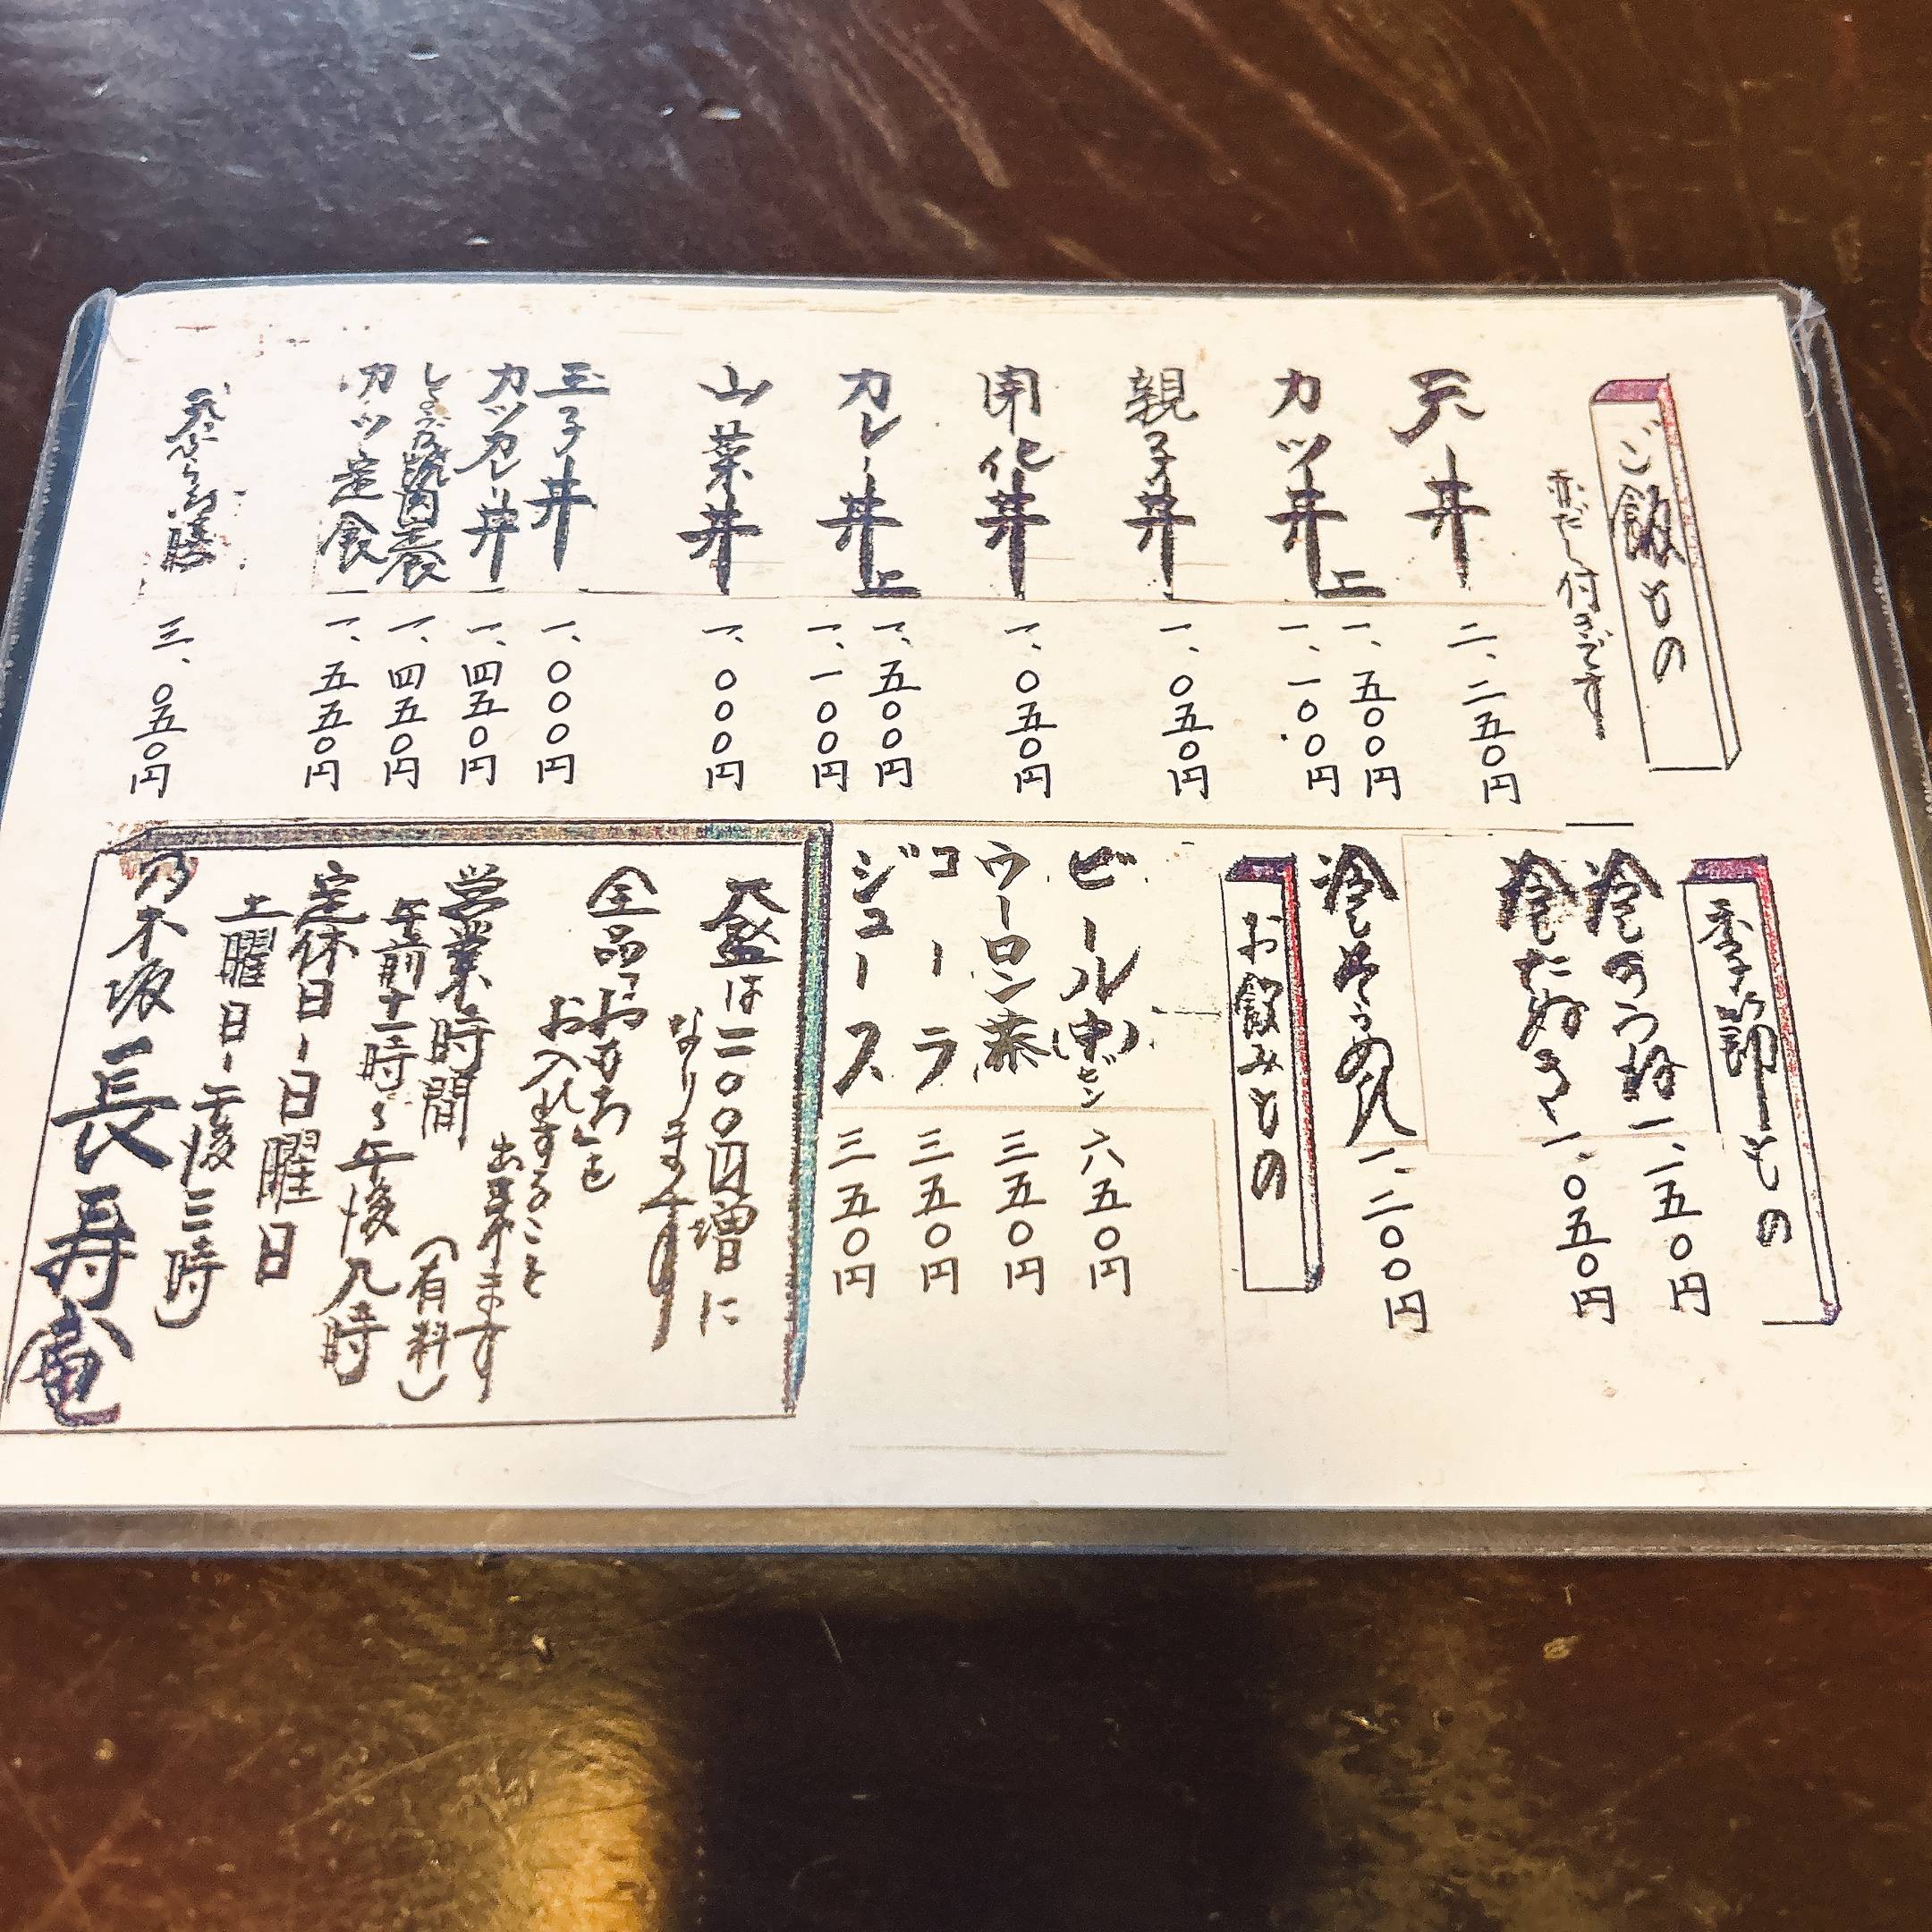 ご飯もの
赤だし付きです
天丼 二、二五〇円
カツ丼 上 一、五〇〇円
一、一〇〇円
親子丼 一、〇五〇円
開化丼 一、〇五〇円
カレー丼 上 一、五〇〇円
一、一〇〇円
山菜丼 一、〇〇〇円
玉子丼 一、〇〇〇円
カツカレー丼 一、四五〇円
しょうが焼肉定食 一、四五〇円
カツ定食 一、五五〇円
天ぷら御膳 三、〇五〇円
季節もの
冷きつね 一、一五〇円
冷したぬき 一、〇五〇円
冷しそうめん 一、二〇〇円
お飲みもの
ビール(中)ビン 六五〇円
ウーロン茶 三五〇円
コーラ 三五〇円
ジュース 三五〇円
大盛は二〇〇円増に
なります
全品「おもち」を
お入れすることも
出来ます
(有料)
営業時間
午前十一時〜午後八時
定休日ー日曜日
土曜日ー午後三時)
乃木坂 長寿庵